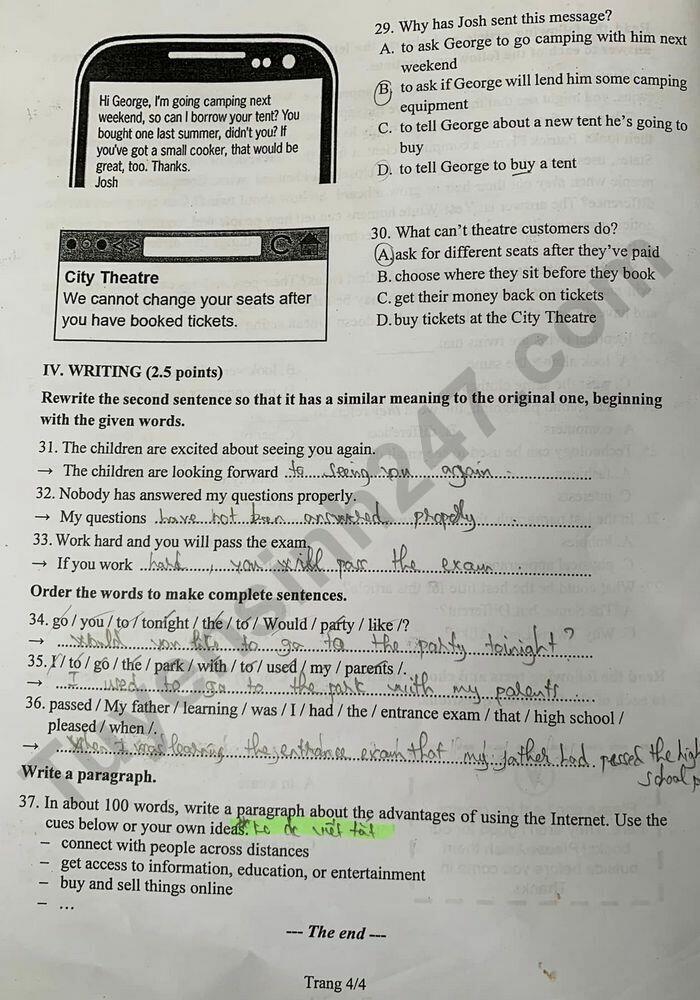 Hi George, I'm going camping next
weekend, so can I borrow your tent? You
bought one last summer, didn't you? If
you've got a small cooker, that would be
great, too. Thanks.
Josh
29. Why has Josh sent this message?
A. to ask George to go camping with him next
weekend
B. to ask if George will lend him some camping
equipment
C. to tell George about a new tent he's going to
buy
D. to tell George to buy a tent
City Theatre
We cannot change your seats after
you have booked tickets.
30. What can't theatre customers do?
A. ask for different seats after they've paid
B. choose where they sit before they book
C. get their money back on tickets
D. buy tickets at the City Theatre
IV. WRITING (2.5 points)
Rewrite the second sentence so that it has a similar meaning to the original one, beginning
with the given words.
31. The children are excited about seeing you again.
→ The children are looking forward to seeing you again
32. Nobody has answered my questions properly.
→ My questions have not been answered properly
33. Work hard and you will pass the exam.
→ If you work hard, you will pass the exam
Order the words to make complete sentences.
34. go / you / to / tonight / the / to / Would / party / like /?
→ would you like to go to the party toinight?
35. I / to / go / the / park / with / to / used / my / parents /.
→ I used to go to the park with my parents
36. passed / My father / learning / was / I / had / the / entrance exam / that / high school /
pleased / when /.
→ when I was learning the entrance exam that my father had passed the high
school
Write a paragraph.
37. In about 100 words, write a paragraph about the advantages of using the Internet. Use the
cues below or your own ideas. ko đc viết tắt
– connect with people across distances
– get access to information, education, or entertainment
– buy and sell things online
– ...
--- The end ---
Trang 4/4
Tuyensinh247.com